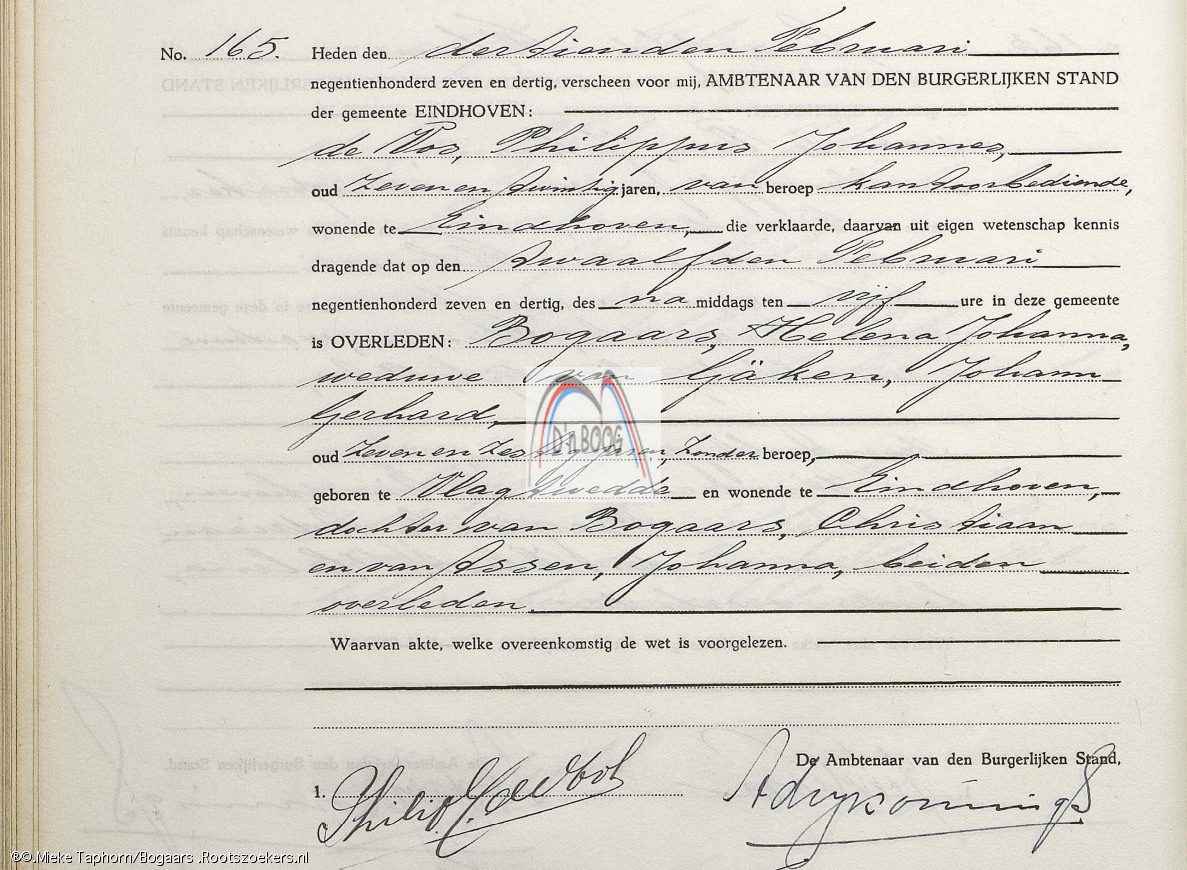 No. 165. Heden den dertienden Februari
negentienhonderd zeven en dertig, verscheen voor mij, AMBTENAAR VAN DEN BURGERLIJKEN STAND
der gemeente EINDHOVEN:
de Vos, Philippus Johannes,
oud zeven en twintig jaren, van beroep kantoorbediende,
wonende te Eindhoven, die verklaarde, daarvan uit eigen wetenschap kennis
dragende dat op den twaalfden Februari
negentienhonderd zeven en dertig, des na middags ten vijf ure in deze gemeente
is OVERLEDEN: Bogaars, Helena Johanna,
weduwe van Gjäken, Johann
Gerhard,
oud zeven en zestig jaren, zonder beroep,
geboren te Vlagtwedde en wonende te Eindhoven,
dochter van Bogaars, Christiaan
en van Assen, Johanna, beiden
overleden.
Waarvan akte, welke overeenkomstig de wet is voorgelezen.
De Ambtenaar van den Burgerlijken Stand,
1.
D'n BOOG
©© Mieke Taphorn/Bogaars .Rootszoekers.nl